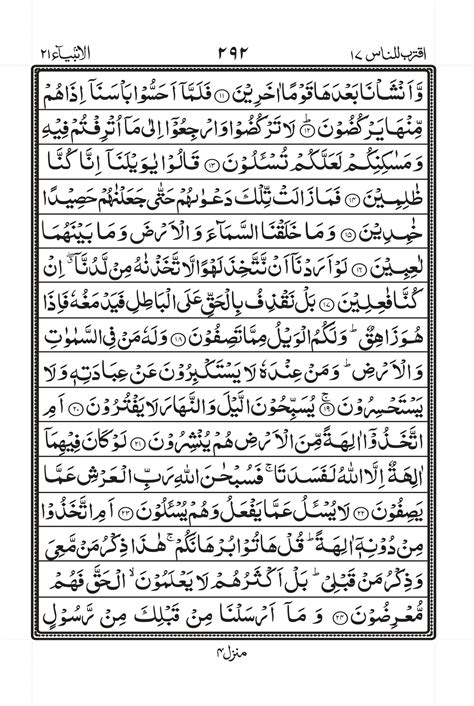 اقترب للناس ١٧ ٢٩٢ الانبياء ٢١
وَّاَنۡشَاۡنَا بَعۡدَهَا قَوۡمًا اٰخَرِيۡنَ ⑪ فَلَمَّاۤ اَحَسُّوۡا بَاۡسَنَاۤ اِذَا هُمۡ
مِّنۡهَا يَرۡكُضُوۡنَ ⑫ لَا تَرۡكُضُوۡا وَارۡجِعُوۡۤا اِلٰى مَاۤ اُتۡرِفۡتُمۡ فِيۡهِ
وَمَسٰكِنِكُمۡ لَعَلَّكُمۡ تُسۡــَٔلُوۡنَ ⑬ قَالُوۡا يٰوَيۡلَنَاۤ اِنَّا كُنَّا
ظٰلِمِيۡنَ ⑭ فَمَا زَالَتۡ تِّلۡكَ دَعۡوٰٮهُمۡ حَتّٰى جَعَلۡنٰهُمۡ حَصِيۡدًا
خٰمِدِيۡنَ ⑮ وَمَا خَلَقۡنَا السَّمَآءَ وَالۡاَرۡضَ وَمَا بَيۡنَهُمَا
لٰعِبِيۡنَ ⑯ لَوۡ اَرَدۡنَاۤ اَنۡ نَّـتَّخِذَ لَهۡوًا لَّاتَّخَذۡنٰهُ مِنۡ لَّدُنَّاۤ ۖ اِنۡ
كُنَّا فٰعِلِيۡنَ ⑰ بَلۡ نَقۡذِفُ بِالۡحَـقِّ عَلَى الۡبَاطِلِ فَيَدۡمَغُهٗ فَاِذَا
هُوَ زَاهِقٌ‌ ؕ وَلَـكُمُ الۡوَيۡلُ مِمَّا تَصِفُوۡنَ ⑱ وَلَهٗ مَنۡ فِى السَّمٰوٰتِ
وَالۡاَرۡضِ‌ؕ وَمَنۡ عِنۡدَهٗ لَا يَسۡتَكۡبِرُوۡنَ عَنۡ عِبَادَتِهٖ وَلَا
يَسۡتَحۡسِرُوۡنَ‌ۚ ⑲ يُسَبِّحُوۡنَ الَّيۡلَ وَالنَّهَارَ لَا يَفۡتُرُوۡنَ ⑳ اَمِ
اتَّخَذُوۡۤا اٰلِهَةً مِّنَ الۡاَرۡضِ هُمۡ يُنۡشِرُوۡنَ ㉑ لَوۡ كَانَ فِيۡهِمَاۤ
اٰلِهَةٌ اِلَّا اللّٰهُ لَـفَسَدَتَا‌ۚ فَسُبۡحٰنَ اللّٰهِ رَبِّ الۡعَرۡشِ عَمَّا
يَصِفُوۡنَ ㉒ لَا يُسۡــَٔلُ عَمَّا يَفۡعَلُ وَهُمۡ يُسۡــَٔلُوۡنَ ㉓ اَمِ اتَّخَذُوۡا
مِنۡ دُوۡنِهٖۤ اٰلِهَةً‌ ؕ قُلۡ هَاتُوۡا بُرۡهَانَكُمۡ‌ۚ هٰذَا ذِكۡرُ مَنۡ مَّعِىَ
وَذِكۡرُ مَنۡ قَبۡلِىۡ‌ؕ بَلۡ اَكۡثَرُهُمۡ لَا يَعۡلَمُوۡنَۙ الۡحَـقَّ‌ فَهُمۡ
مُّعۡرِضُوۡنَ ㉔ وَمَاۤ اَرۡسَلۡنَا مِنۡ قَبۡلِكَ مِنۡ رَّسُوۡلٍ
منزل ٤